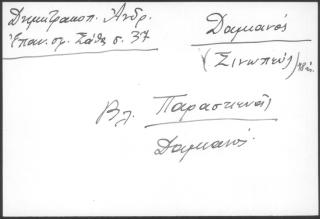 Δημητρακοπ. Ἀνδρ.
Ἐπαν. σφ. Σάθα σ. 37
Δαμιανός
(Σινωπεύς)
Βλ. Παρασκευᾶς
Δαμιανός.